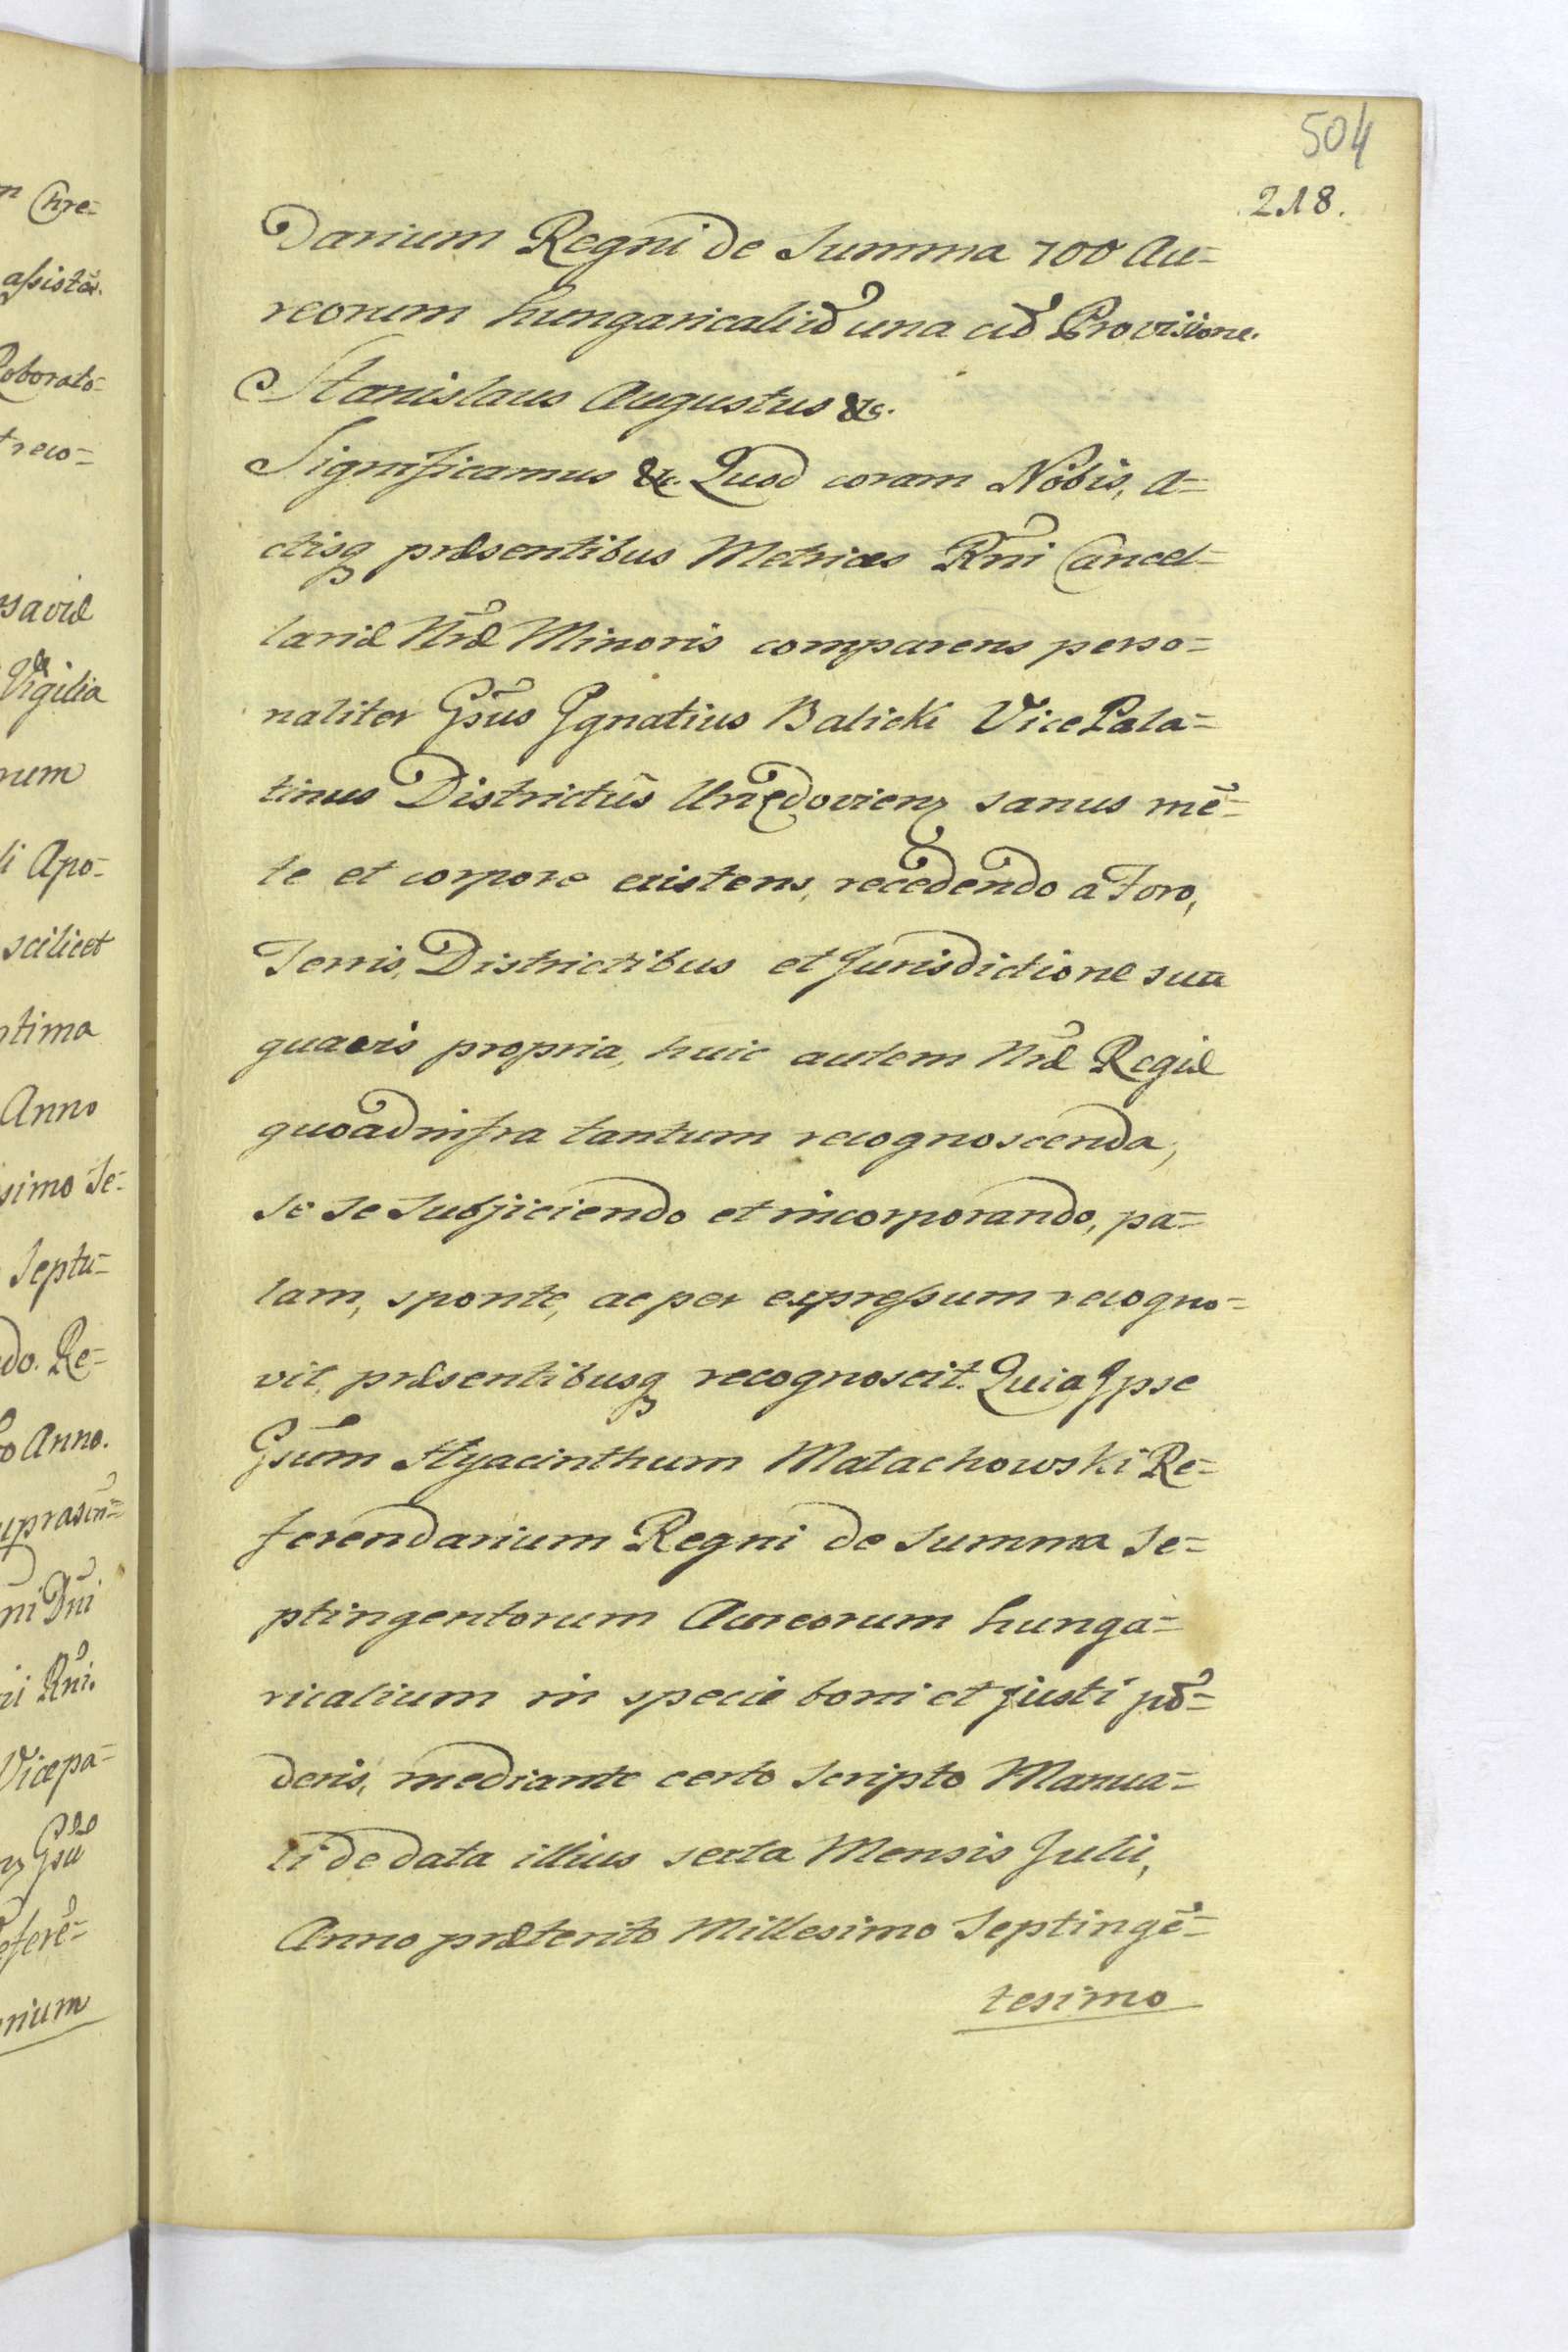 504
218.
darium Regni de Summa 700 Au=
reorum hungaricaliũ una cũ Provisione.
Stanislaus Augustus &c.
Significamus &c. Quod coram Nobis, A=
ctisq præsentibus Metrices Rñi Cancel=
lariæ Nræ Minoris comparens perso=
naliter Gsũs Ignatius Balicki Vice Pala=
tinus Districtûs Urzędovienz sanus mẽ=
te et corpore existens, recedendo a Foro,
Terris, Districtibus et Jurisdictione sua
quavis propria, huic autem Nræ Regiæ
quoad infra tantum recognoscenda,
se se Subjiciendo et incorporando, pa=
lam, sponte, ac per expressum recogno=
vit, præsentibusq recognoscit. Quia Ipse
Gsũm Hyacinthum Małachowski Re=
ferendarium Regni de Summa Se=
ptingentorum Aureorum hunga=
ricalium in specie boni et justi põ=
deris, mediante certo Scripto Manua=
li de data illius sexta Mensis Julii,
Anno præterito Millesimo Septingẽ=
tesimo
n Chre=
assistẽn.
Roborato=
treco=
Vigilia
num
li Apo=
scilicet
ntima
Anno
simo Se=
Septu=
do. Re=
o Anno.
ni Dñi
ii Rñi.
Vicepa=
Gsũ
eferẽ=
rium